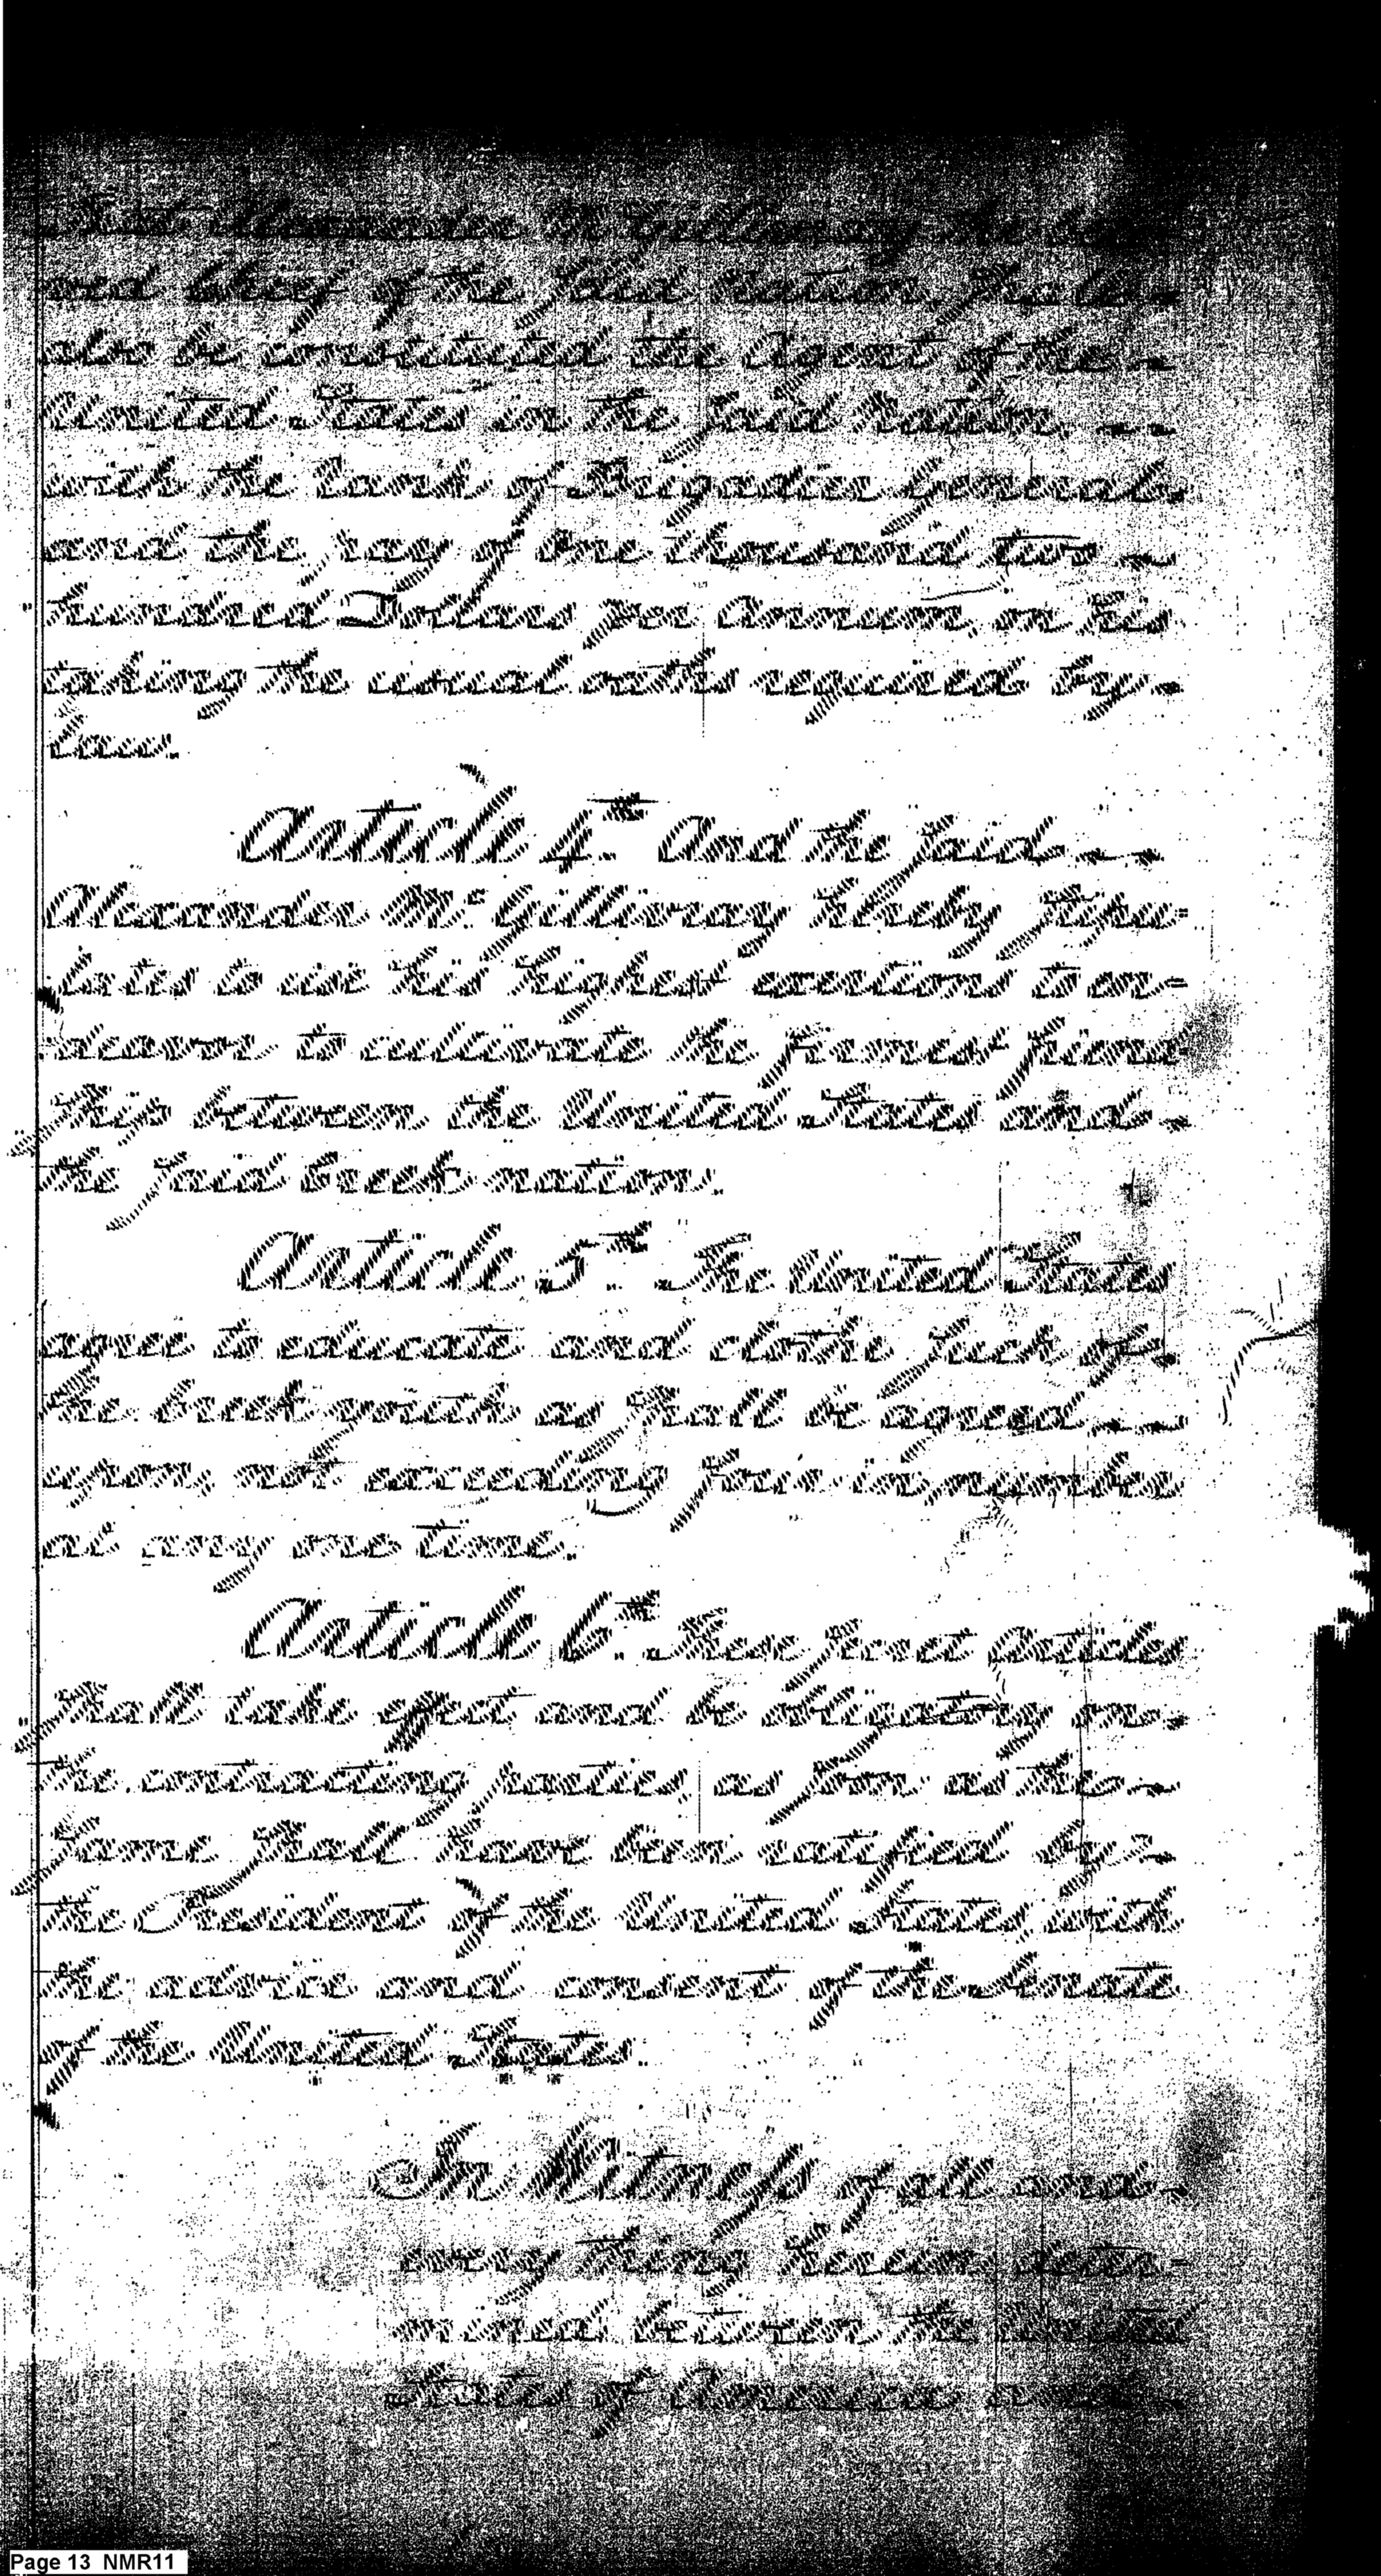 that Alexander McGillivray the be-
ved Chief of the said Nation, shall
also be constituted the Agent of the
United States in the said Nation,
with the rank of Brigadier General,
and the pay of One thousand two
hundred Dollars per Annum, on his
taking the usual oaths required by
law.
Article 4th. And the said
Alexander McGillivray hereby stipu-
lates to use his highest exertions to en-
deavor to cultivate the firmest friend
ship between the United States and
the said Creek nation.
Article 5th. The United States
agree to educate and clothe such of
the Creek youth as shall be agreed
upon, not exceeding four in number
at any one time.
Article 6th. These secret Articles
shall take effect and be obligatory on
the contracting parties, as soon as the
same shall have been ratified by
the President of the United States, with
the advice and consent of the Senate
of the United States.
In Witness of all and
every thing herein deter-
mined between the United
States of America and
Page 13 NMR11